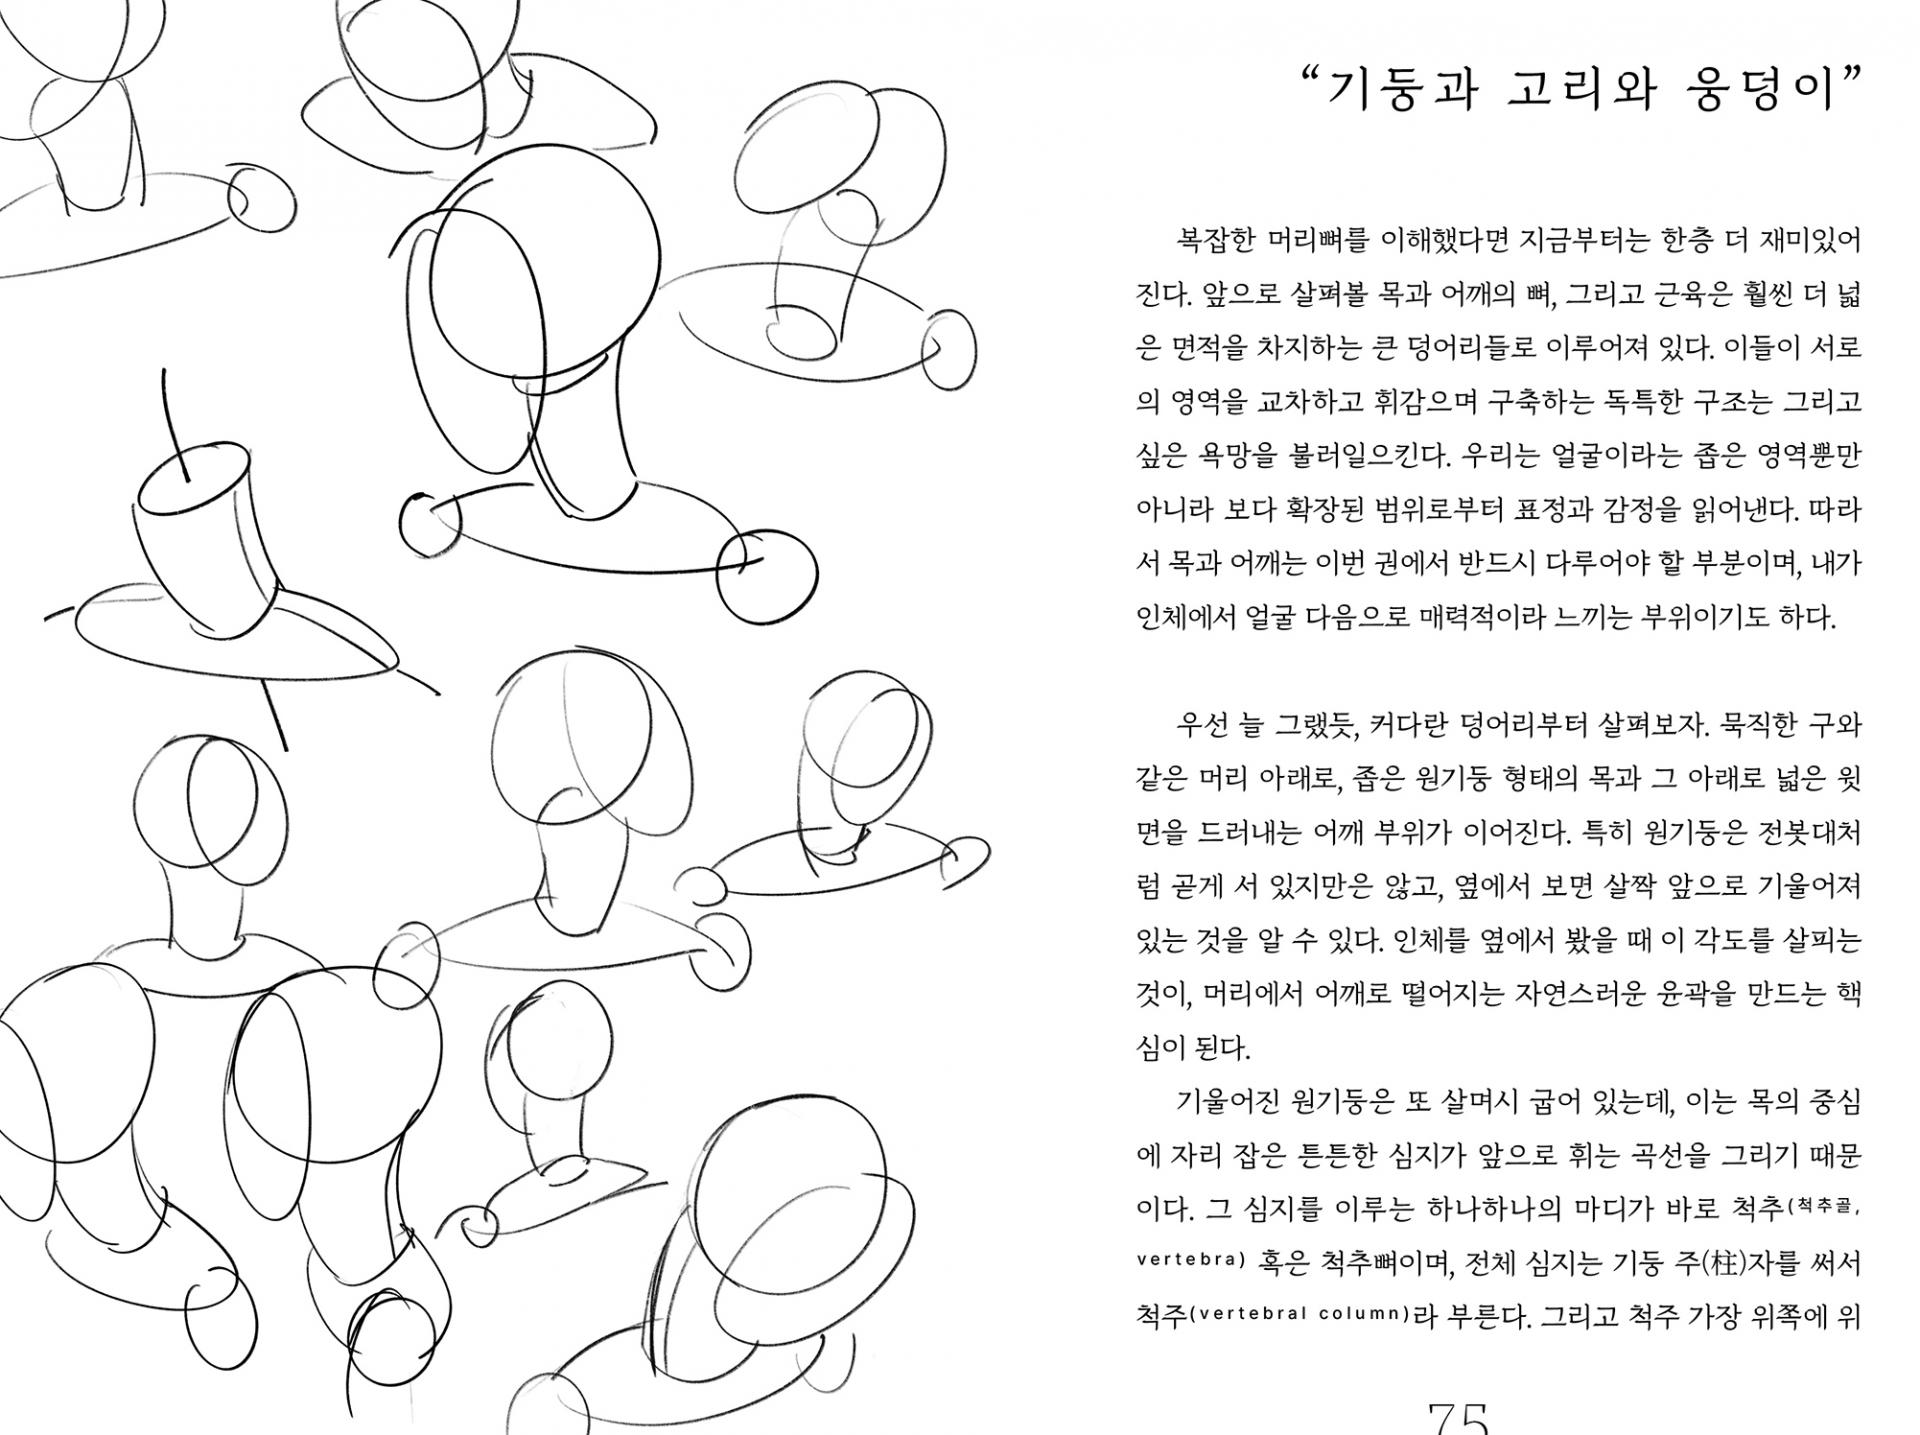 “기둥과 고리와 웅덩이”
복잡한 머리뼈를 이해했다면 지금부터는 한층 더 재미있어
진다. 앞으로 살펴볼 목과 어깨의 뼈, 그리고 근육은 훨씬 더 넓
은 면적을 차지하는 큰 덩어리들로 이루어져 있다. 이들이 서로
의 영역을 교차하고 휘감으며 구축하는 독특한 구조는 그리고
싶은 욕망을 불러일으킨다. 우리는 얼굴이라는 좁은 영역뿐만
아니라 보다 확장된 범위로부터 표정과 감정을 읽어낸다. 따라
서 목과 어깨는 이번 권에서 반드시 다루어야 할 부분이며, 내가
인체에서 얼굴 다음으로 매력적이라 느끼는 부위이기도 하다.
우선 늘 그랬듯, 커다란 덩어리부터 살펴보자. 묵직한 구와
같은 머리 아래로, 좁은 원기둥 형태의 목과 그 아래로 넓은 윗
면을 드러내는 어깨 부위가 이어진다. 특히 원기둥은 전봇대처
럼 곧게 서 있지만은 않고, 옆에서 보면 살짝 앞으로 기울어져
있는 것을 알 수 있다. 인체를 옆에서 봤을 때 이 각도를 살피는
것이, 머리에서 어깨로 떨어지는 자연스러운 윤곽을 만드는 핵
심이 된다.
기울어진 원기둥은 또 살며시 굽어 있는데, 이는 목의 중심
에 자리 잡은 튼튼한 심지가 앞으로 휘는 곡선을 그리기 때문
이다. 그 심지를 이루는 하나하나의 마디가 바로 척추(척추골,
vertebra) 혹은 척추뼈이며, 전체 심지는 기둥 주(柱)자를 써서
척주(vertebral column)라 부른다. 그리고 척주 가장 위쪽에 위
75